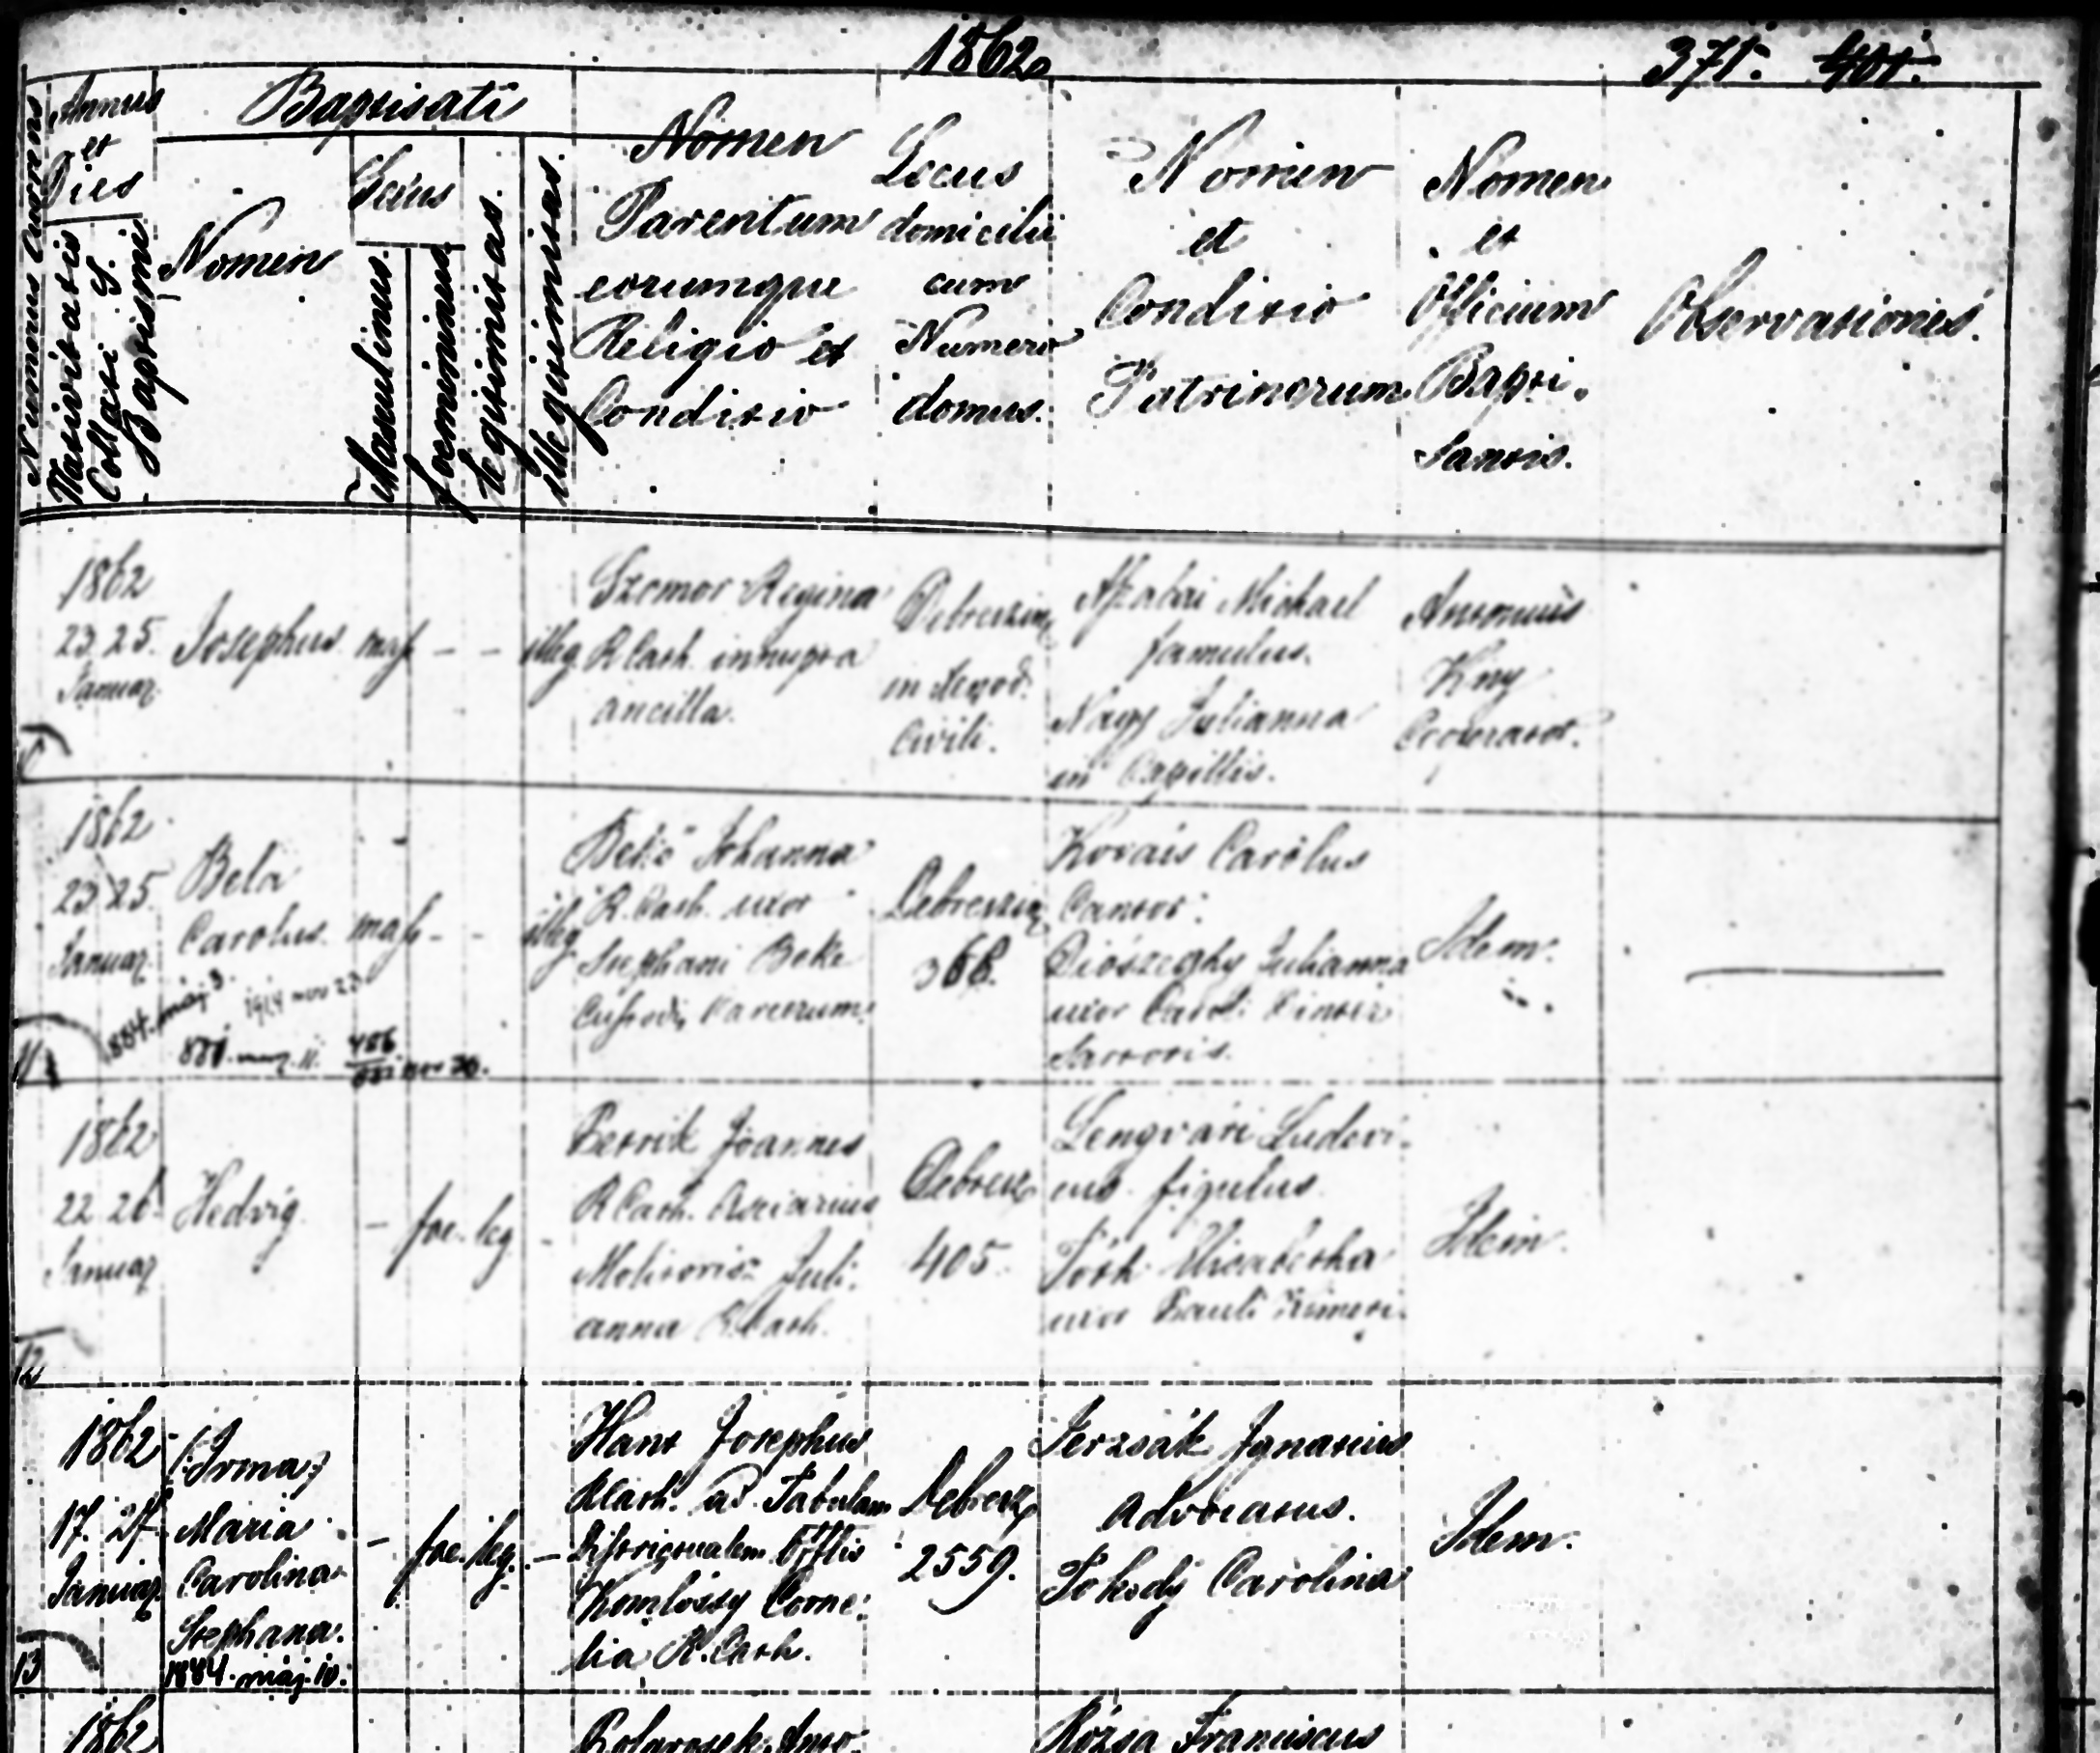 1862.
371. 401.
Numerus Currens
Annus
et
Dies
Nativitatis
Collati S.
Baptismi
Baptisati
Nomen
Sexus
Masculinus.
foemininus
legitimitas.
illegitimitas.
Nomen
Parentum
eorumque
Religio et
Conditio
Locus
domicilii
cum
Numero
domus.
Nomen
et
Conditio
Patrinorum
Nomen
et
Officium
Bapti.
santis.
Observationes.
1862
23 25.
Januar.
Josephus
mas
- -
illeg
Szomor Regina
R Cath. innupta
ancilla.
Debreczin
in
Civili.
Michael
famulus.
Nagy Julianna
in Capillis.
Antonius
Kny
Cooperator.
1862
23 25.
Januar.
11
Bela
Carolus.
884. máj 3.
1914 nov 22
mas - -
illeg
Johanna
R. Cath. uxor
Stephani Beke
Custodis Carcerum.
Debreczin
366.
Kováts Carolus
Cantor.
Dioszeghy Julianna
uxor Caroli
Sartoris.
Idem.
1862
22 26.
Januar
12
Hedvig.
- foe. leg -
Petrik Joannes
R Cath.
Juli.
anna R Cath.
Debrecz
405.
Lengvári Ludovi.
cus. figulus.
Tóth Elisabetha
uxor Pauli
Idem.
1862
17. 27.
Januar.
13
(:Irma:)
Maria
Carolina
Stephana.
1884. máj. 10.
- foe. leg. -
Hant Josephus
R Cath. ad Tabulam
Districtualem Offlis
Komlóssy Corne.
lia R. Cath.
Debrecz
2559.
Jerzsák Ignatius
Advocatus.
Tokody Carolina
Idem.
1862
Rózsa Franciscus